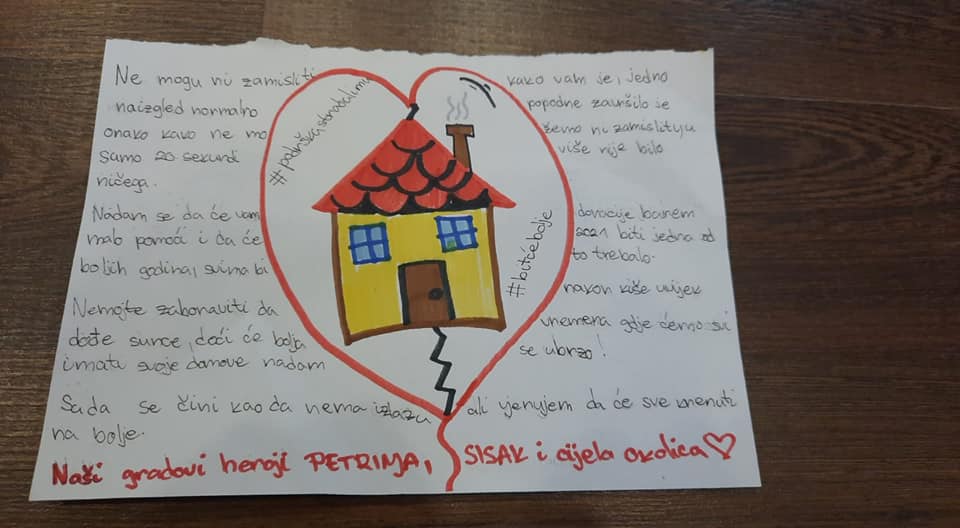 Ne mogu ni zamisliti kako vam je, jedno
naizgled normalno popodne završilo je
onako kako ne mo žemo ni zamisliti, u
samo 20 sekundi više nije bilo
ničega.
Nadam se da će vam donacije barem
malo pomoći i da će 2021 biti jedna od
boljih godina, svima bi to trebalo.
Nemojte zaboraviti da nakon kiše uvijek
dođe sunce, doći će bolja vremena gdje ćemo svi
imati svoje domove nadam se ubrzo!
Sada se čini kao da nema izlaza ali vjerujem da će sve krenuti
na bolje.
Naši gradovi heroji PETRINJA, SISAK i cijela okolica
#bitćebolje